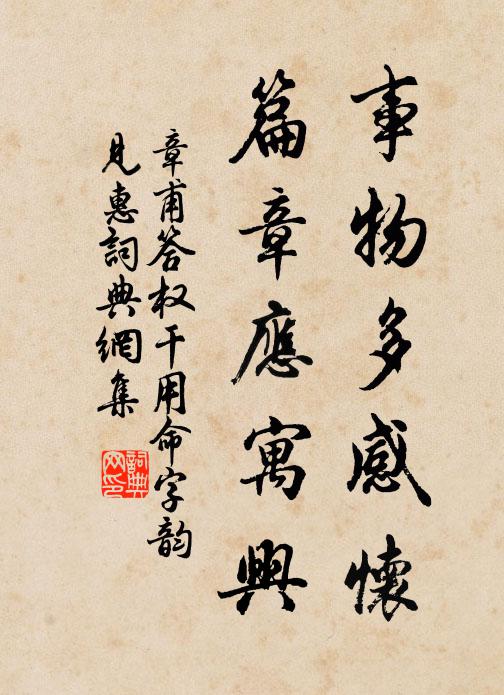 事物多感懷
篇章應寓興
章甫答权干用命字韵
見惠詞典網集
詞典網印